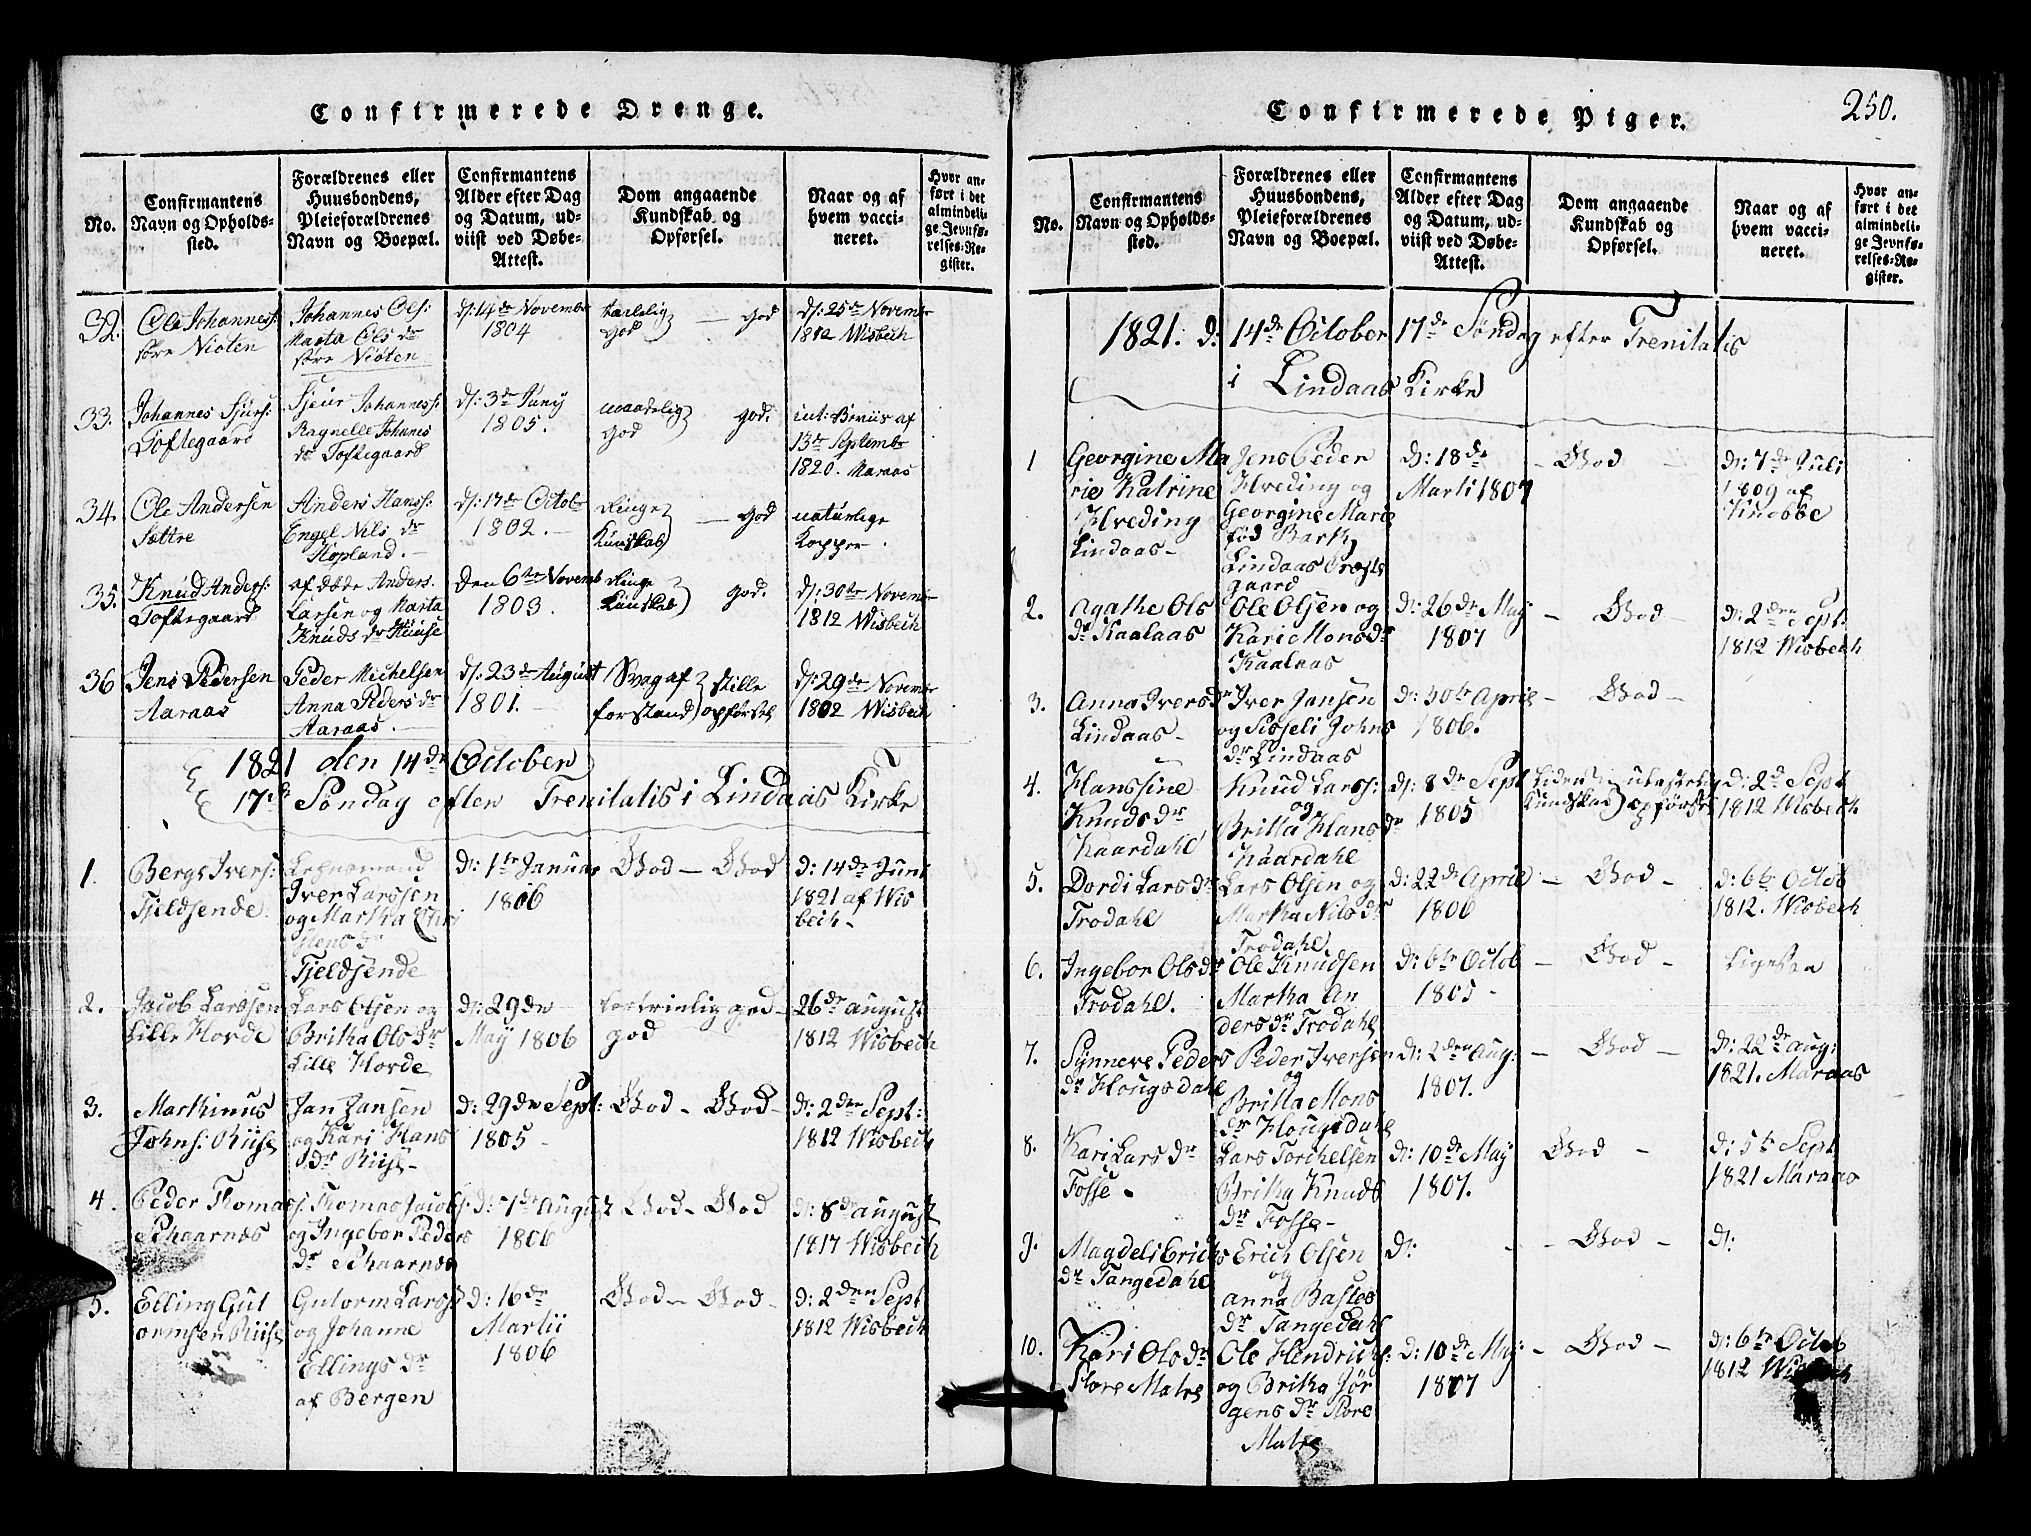 Confirmerede Drenge.
No.
Confirmantens
Navn og Opholds-
sted.
Forældrenes eller
Huusbondens,
Pleieforældrenes
Navn og Boepæl.
Confirmantens
Alder efter Dag
og Datum, ud-
viist ved Døbe-
Attest.
Dom angaaende
Kundskab og
Opførsel.
Naar og af
hvem vacci-
neret.
Hvor an-
ført i det
almindeli-
ge Jevnfø-
relses-Re-
gister.
32.
Ole Johanness:
Nioten
Johannes Ols:
Marta Ols dr
Nioten
d: 14de Novembr
1804
god
god
d: 25de Novembr
1812 Wisbech
33.
Johannes Sjurs:
Toftegaard
Sjeur Johanness:
Ragnelle Johanes
dr Toftegaard
d: 3de Juny
1805.
maadelig
god
god.
af
13de Septembr
1820. Maraas
34.
Ole Andersen
Sættre
Anders Hanss:
Engel Nils dr
Hopland.
d: 17de Octobr
1802.
Ringe
Kunskab
god
naturlige
Kopper.
35.
Knud Anders:
Toftegaard
af døde Anders
Larsen og Marta
Knuds dr Huuse
Den 6te Novemb
1803.
Ringe
Kunskab
god.
d: 30te Novembr
1812 Wisbech
36
Jens Pedersen
Aaraas
Peder Michelsen
Anna Peders dr
Aaraas.
d: 23de August
1801.
Svag af
forstand
stille
opførsel
d: 29de Novembr
1802 Wisbech
1821 den 14de October
17de Søndag efter Trenitatis i Lindaas Kirke
1.
Berge Ivers:
Fjeldsende.
Iver Larssen
og Martha Chri
stens dr
Fjeldsende
D: 1te Januar
1806
God — God
d: 14de Juni
1821 af Wis
bech
2.
Jacob Larssen
Lille Horde
Lars Olsen og
Britha Ols dr
Lille Horde
D: 29de
May 1806
fortrinlig god
god
26de august
1812 Wisbech
3.
Marthinus
Johns: Riise
Jan Jansen
og Kari Hans
dr Riise
D: 29de Sept:
1805
God — God
d: 2den Sept:
1812 Wisbech
4.
Peder Thomas:
Skaarnæs
Thomas Jacobs:
og Ingebor Peders
dr Skaarnæs
d: 7de August
1806
God — God
d: 8de august
1817 Wisbech
5.
Elling Gut
ormsen Riise
Gutorm Larss:
og Johanne
Ellings dr
af Bergen
d: 16de
Martii
1806
God — God
d: 2den Sept
1812 Wisbech
Confirmerede Piger.
250.
No.
Confirmantens
Navn og Opholds-
sted.
Forældrenes eller
Huusbondens,
Pleieforældrenes
Navn og Boepæl.
Confirmantens
Alder efter Dag
og Datum, ud-
viist ved Døbe-
Attest.
Dom angaaende
Kundskab og
Opførsel.
Naar og af
hvem vacci-
neret.
Hvor an-
ført i det
almindeli-
ge Jevnfø-
relses-Re-
gister.
1821. d: 14de October 17de Søndag efter Trenitatis
i Lindaas Kirke
1
Georgine Ma
rie Katrine
Hveding
Lindaas
Jens Peder
Hveding og
Georgine Marie
fød Barth
Lindaas Præste
gaard
d: 18de
Marti 1807
God
d: 7de Juli
1809 af
2.
Agathe Ols
dr Kaalaas
Ole Olsen og
Kari Mons dr
Kaalaas
d: 26de May
1807
God
d: 2den Sept:
1812 Wisbech
3.
Anna Ivers dr
Lindaas
Iver Jansen
og Sisseli Johns
dr Lindaas
d: 30te April
1806.
God
4.
Hanssine
Knuds dr
Kaardahl
Knud Larss:
og
Britta Hans dr
Kaardahl
d: 8de Sept
1805
Liden
Kundskab
ulastelig
opførsel
d: 2de Sept
1812 Wisbech
5.
Dordi Lars dr
Trodahl
Lars Olsen og
Martha Nils dr
Trodahl
d: 22de April
1806
God
d: 6te Octob
1812. Wisbech
6.
Ingebor Ols dr
Trodahl.
Ole Knudsen
Martha An
ders dr Trodahl
d: 6te Octob
1805
God
7.
Synneve Peders
dr Hougsdahl
Peder Iversen
og
Britta Mons
dr Hougsdahl
d: 2den Aug:
1807.
God
d: 22de aug:
1821. Maraas
8.
Kari Lars dr
Fosse
Lars Torchelsen
Britha Knuds
dr Fosse
d: 10de May
1807.
God
d: 5te Sept
1821 Maraas
9.
Magdeli Erichs
dr Tangedahl
Erich Olsen
og
anna Bastes
dr Tangedahl
d:
God
d:
10.
Kari Ols dr
Store Matre
Ole Hendrichs:
og Britha Jør
gens dr Store
Matre
d: 10de May:
1807
God
d: 6te Octob
1812 Wisbech